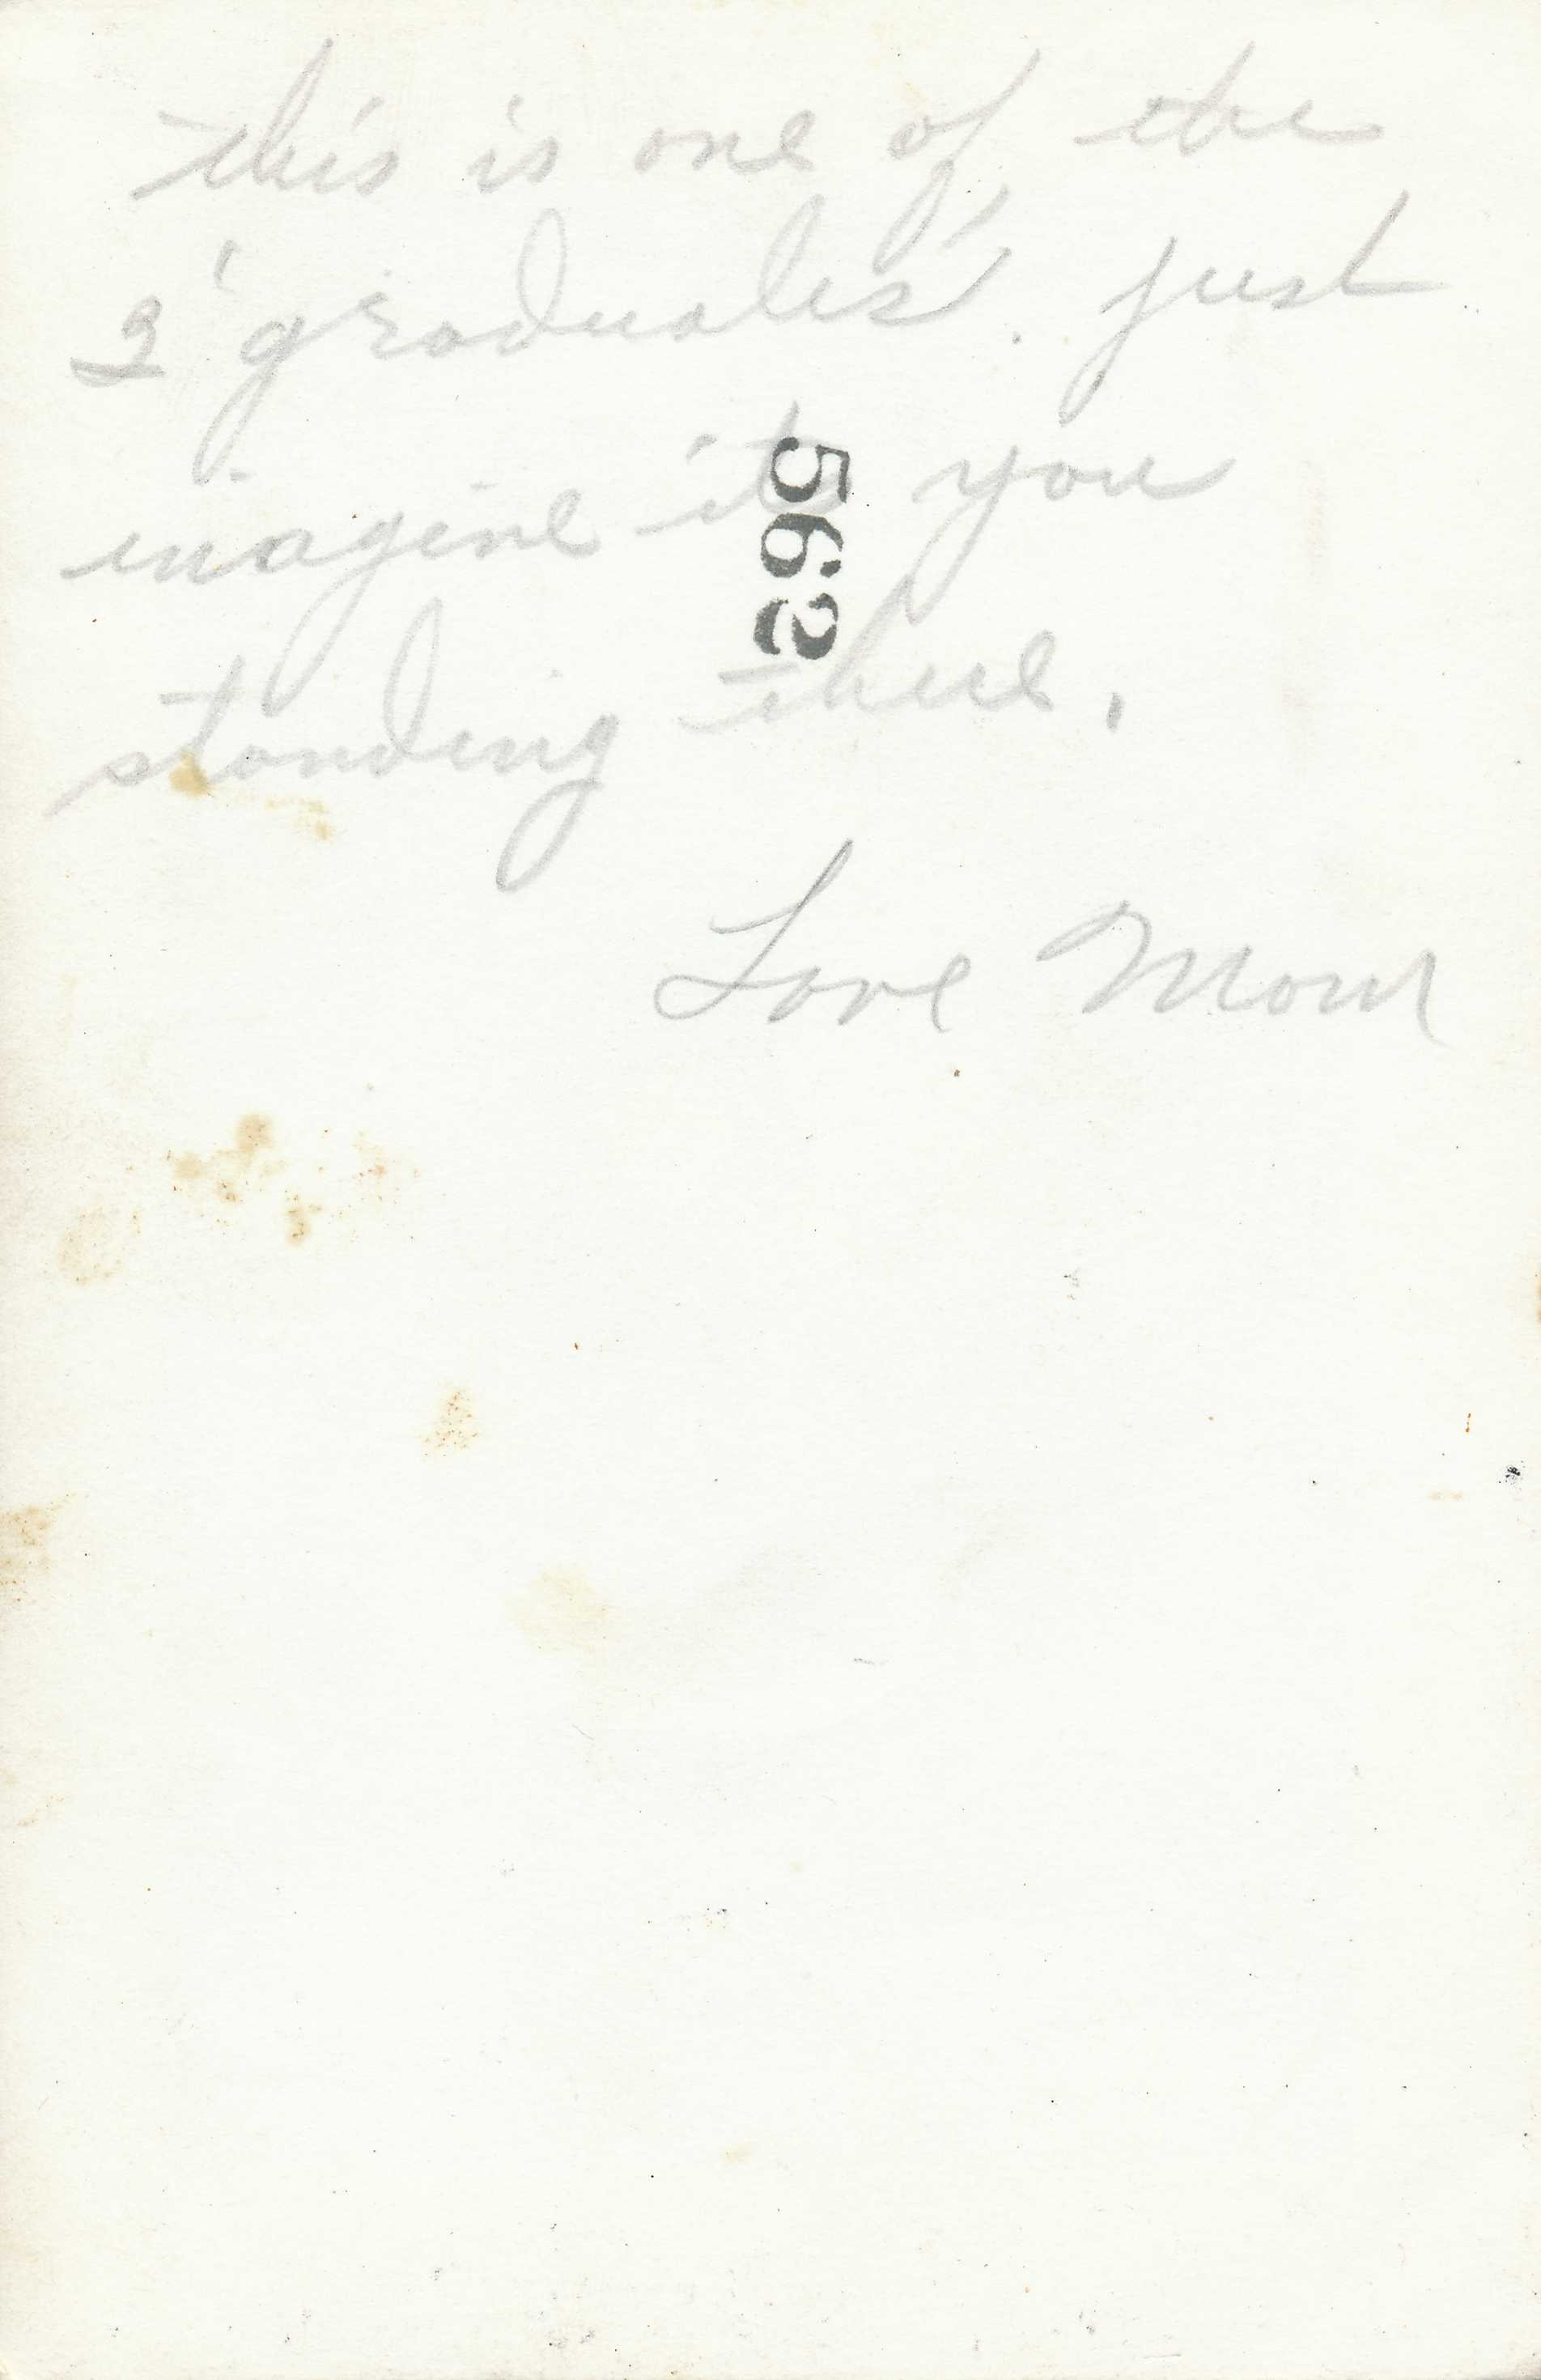 this is one of the
2 "graduates". just
imagine it you
standing there.
Love Mom
562